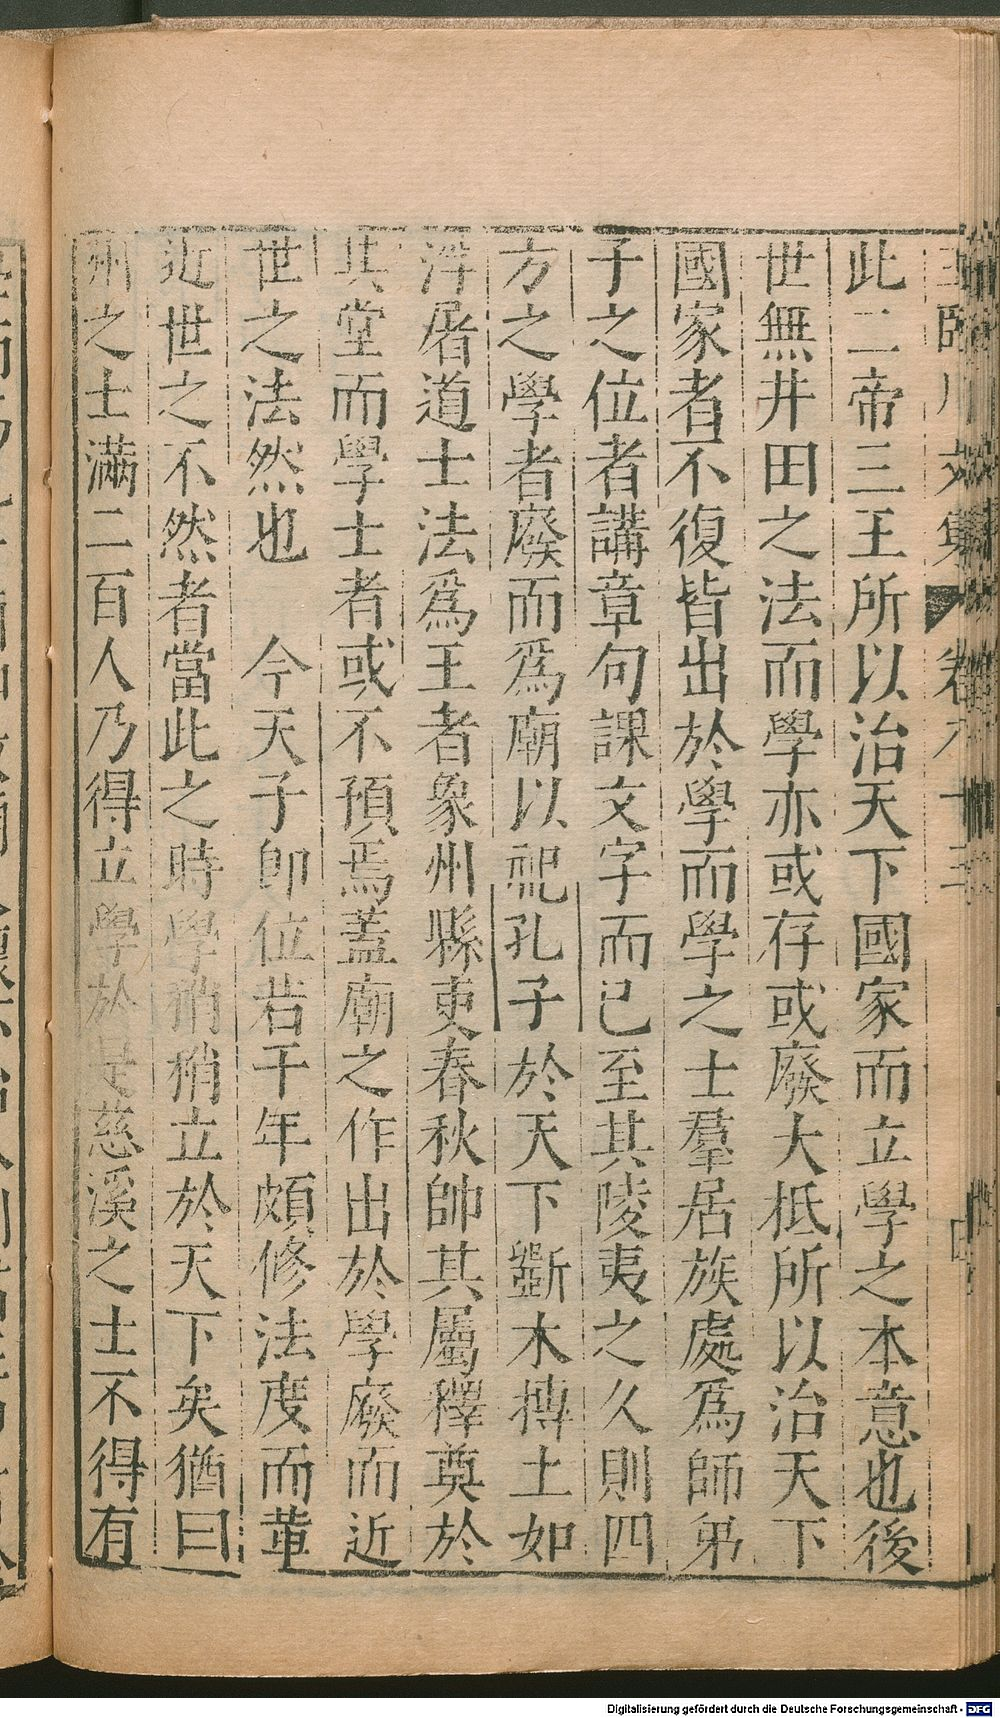 王臨川文集 卷八十三
此二帝三王所以治天下國家而立學之本意也後
世無井田之法而學亦或存或廢大抵所以治天下
國家者不復皆出於學而學之士羣居族處爲師弟
子之位者講章句課文字而已至其陵夷之久則四
方之學者廢而爲廟以祀孔子於天下斲木摶土如
浮屠道士法爲王者象州縣吏春秋帥其屬釋奠於
其堂而學士者或不預焉蓋廟之作出於學廢而近
世之法然也　今天子即位若干年頗修法度而革
近世之不然者當此之時學稍稍立於天下矣猶曰
州之士滿二百人乃得立學於是慈溪之士不得有
Digitalisierung gefördert durch die Deutsche Forschungsgemeinschaft - DFG